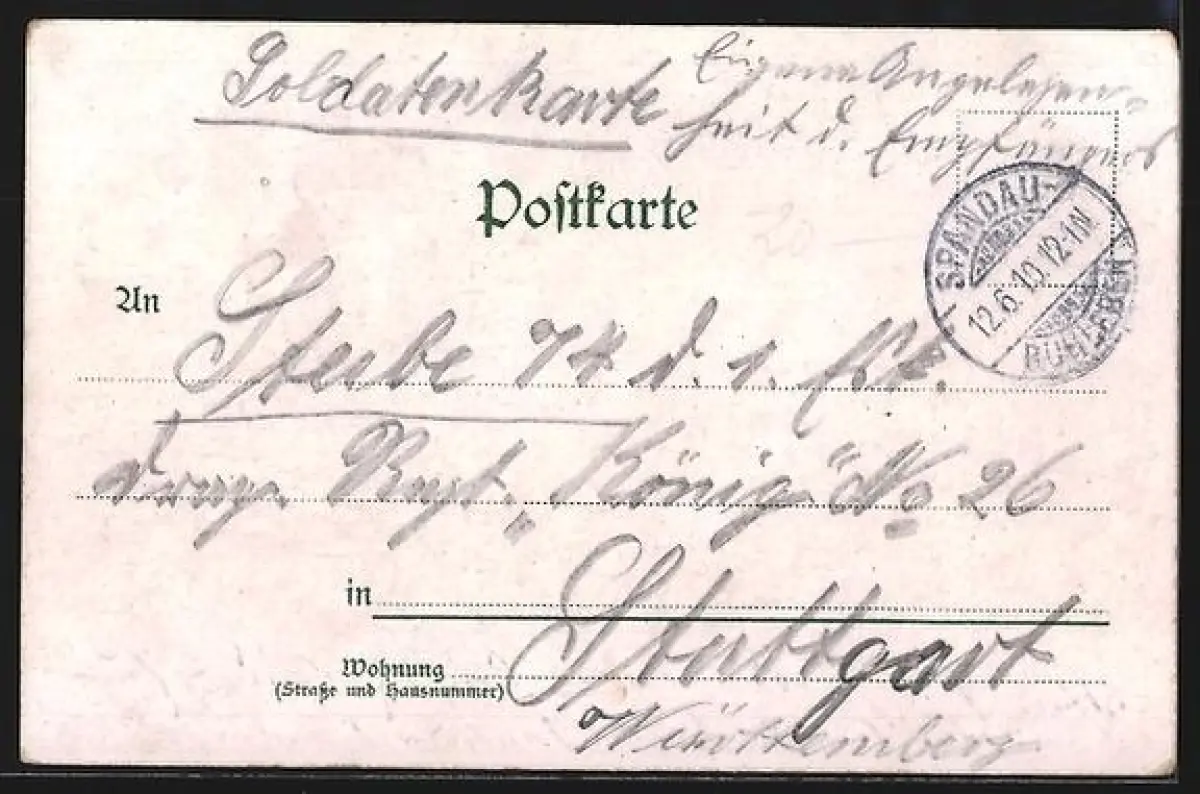 Soldatenkarte
Eigene Angelegen-
heit d. Empfängers
Postkarte
SPANDAU-
12.6.10.12-1N
RUHLEBEN
An
d. 1.
Drag. Regt. „König" No 26
in
Stuttgart
Wohnung
(Straße und Hausnummer)
Württemberg